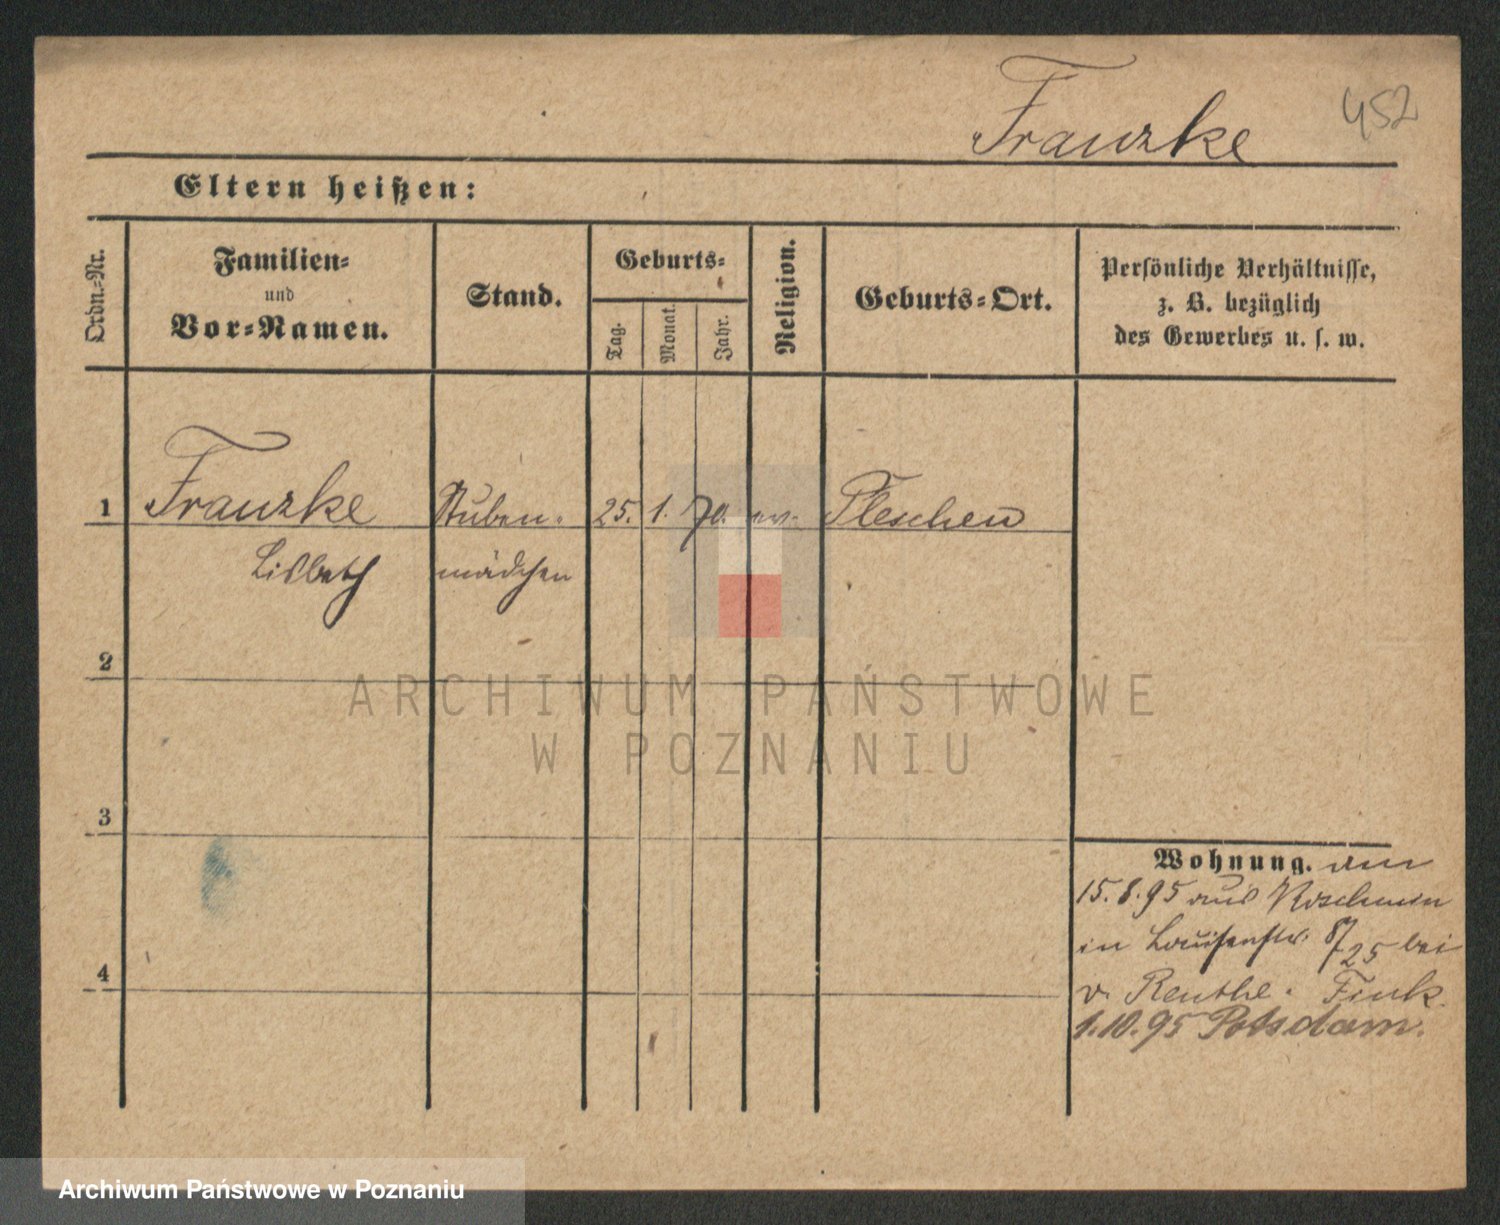 452
Franzke
Eltern heißen:
Ordn.-Nr.
Familien-
und
Vor-Namen.
Stand.
Geburts-
Tag.
Monat.
Jahr.
Religion.
Geburts-Ort.
Persönliche Verhältnisse,
z. B. bezüglich
des Gewerbes u. s. w.
1 Franzke Stuben- 25. 1. 70. ev. Pleschen
Lisbeth mädchen
2
ARCHIWUM PAŃSTWOWE
W POZNANIU
3
Wohnung. am
15.8.95 aus Koschmin
in Louisenstr. 8/25 bei
4
v. Renthe-Fink.
1.10.95 Potsdam.
Archiwum Państwowe w Poznaniu